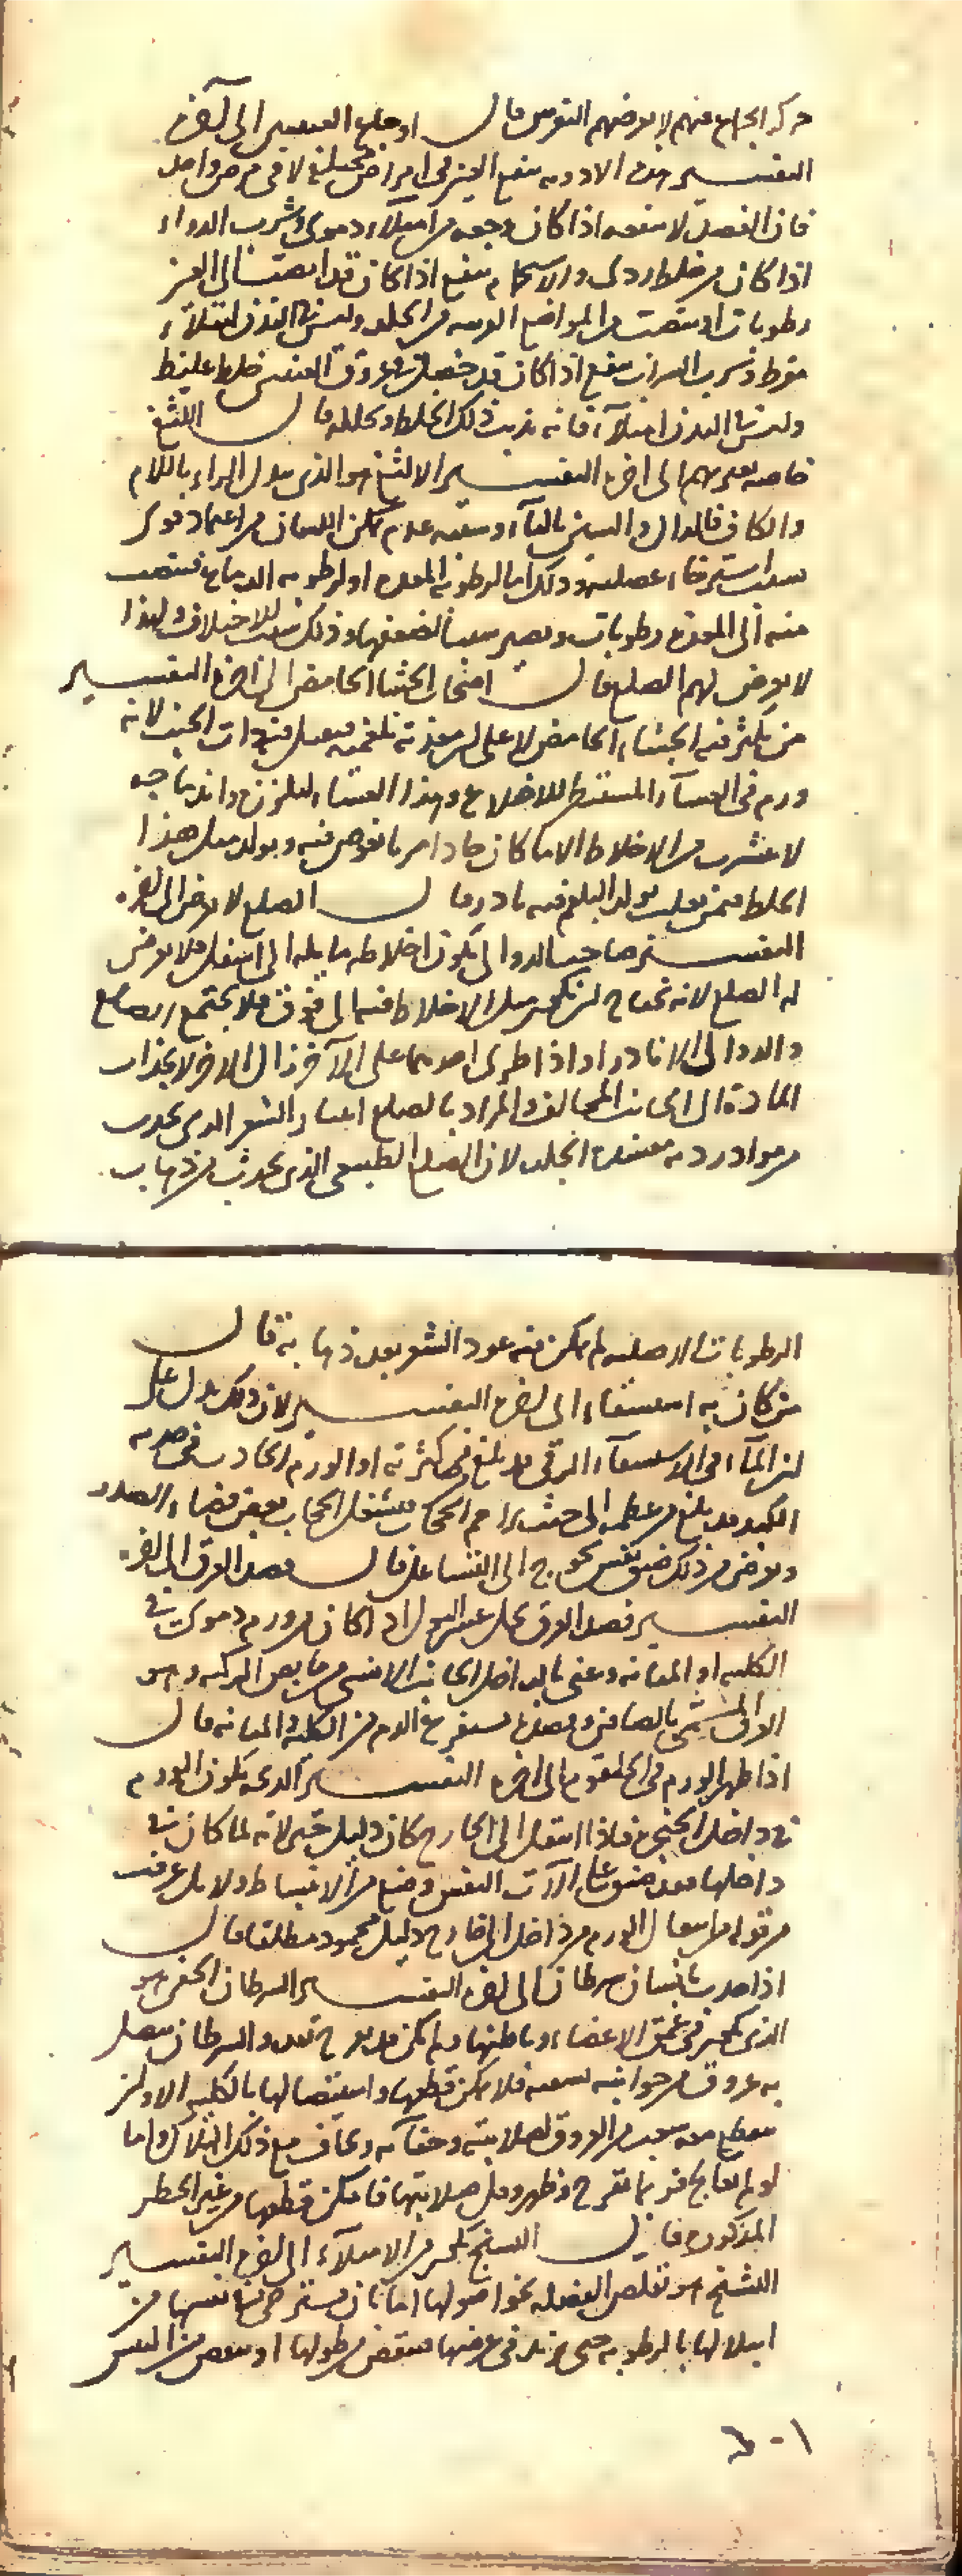 حركة الجماع منهم لا يعرضهم النقرس قال أوجاع العينين إلى آخره
التفسير هذه الادوية ينفع العين في امراض مختلفة لا في مرض واحد
فان الفصد لا ينفعه اذا كان وجعه من امتلاء دموي وشرب الدواء
اذا كان من خلط ردى والاستحمام ينفع اذا كان قد انصبت الى العين
رطوبات او نصبت من المواضع القريبة من الجلد وليس في البدن امتلاء
مفرط وشرب الشراب ينفع اذا كان قد حصل في عروق العينين خلط غليظ
وليس في البدن امتلاء فانه يذيب ذلك الخلط ويحلله قال اللثغ
خاصة يعتريهم الى اخره التفسير الالثغ هو الذي يبدل الراء باللام
والكاف فالدال والسين بالثاء وسببه عدم تمكن اللسان من اعتماد قوى
بسبب استرخاء عضلته وذلك اما لرطوبة المعدة او لرطوبة الدماغ فتنصب
منه الى المعدة رطوبات وتصير سببا لضعفها وذلك سبب للاختلاف ولهذا
لا يعرض لهم الصلع قال اصحاب الجشاء الحامض الى اخره التفسير
من يكثر فيه الجشاء الحامض لا على ان معدته بلغمية فيقل فيه ذات الجنب لانه
ورم في الغشاء المستبطن للاضلاع وهذا الغشاء لتلززه واندماجه
لا يتشرب من الاخلاط الا ما كان حادا مريا يغوص فيه وتولد مثل هذا
الخلط فيمن يغلب تولد البلغم فيه نادر قال الصلع لا يعرض الى اخره
التفسير صاحب الدوالى يكون اخلاطه مايلة الى اسفل فلا يعرض
له الصلع لانه يحتاج ان يكون ميل الاخلاط فيه الى فوق فلا يجتمع الصلع
والدوالى الا نادرا واذا طرى احدهما على الآخر زال الاخر لانجذاب
المادة الى الجانب المخالف والمراد بالصلع انتثار الشعر الذي يحدث
من مواد ردية مفسدة الجلد لان الصلع الطبيعى الذي يحدث من ذهاب
الرطوبات الاصلية لم يمكن فيه عود الشعر بعد ذهابه قال
من كان به استسقاء الى اخره التفسير لان ذلك يدل على
ان الماء في الاستسقاء الزقى قد بلغ في كثرته او الورم الحادث في حدبة
الكبد قد بلغ من عظمه الى حيث يزاحم الحجاب فيشغل الحجاب بعض فضاء الصدر
ويعرض من ذلك ضيق نفس يحوج الى السعال قال فصد العرق الى اخره
التفسير فصد العرق يحل عسر البول اذا كان من ورم دموى في
الكلية او المثانة وعنى بالداخل الجانب الانسى من مابض الركبة وهو
العرق المسمى بالصافن وفصده يستفرغ الدم من الكلية المثانة قال
اذا ظهر الورم في الحلقوم الى اخره التفسير الذبحة يكون الورم
في داخل الحنجرة فاذا انتقل الى الخارج كان دليل خير لانه لما كان في
داخلها فقد ضيق على الآت النفس ومنع من الانبساط ولا بل عرفت
من قوله ما انتقال الورم من داخل الى خارج دليل محمود مطلقا قال
اذا حدث بانسان سرطان الى اخره التفسير السرطان الخفى هو
الذي يكون في عمق الاعضاء وباطنها ولم يكن قد تقرح بعد والسرطان يتصل
به عروق من جوانبه تسقيه فلا يمكن قطعها واستئصالها بالكلية الا وان
ينقطع معه شعب من العروق لصلابته وجفافه ويخاف مع ذلك الهلاك واما
لو لم يعالج فربما تقرح وظهر وقل صلابتها فامكن قطعها من غير الخطر
المذكور قال التشنج يكون من الامتلاء الى اخره التفسير
التشنج هو تقلص العضلة نحو اصولها اما بان تسترخى في نفسها من
ابتلالها بالرطوبة حتى يزيد في عرضها فينقص من طولها او ينقص من اليبس